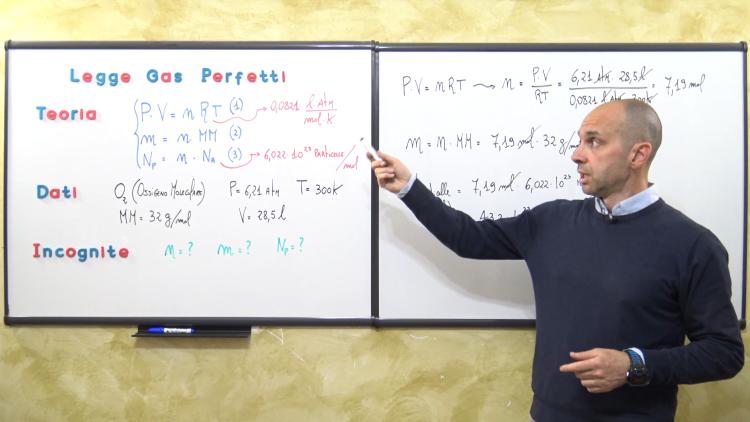 Legge Gas Perfetti
Teoria
P·V = n RT (1) → 0,0821 l Atm / mol·K
m = n MM (2)
Np = n · NA (3) → 6,022·10²³ particelle/mol
Dati
O₂ (Ossigeno Molecolare) P = 6,21 Atm T = 300K
MM = 32 g/mol V = 28,5 l
Incognite
n = ? m = ? Np = ?
P·V = n RT → n = P·V / RT = 6,21 Atm · 28,5 l / 0,0821 l Atm 300K = 7,19 mol
m = n · MM = 7,19 mol · 32 g/m
= 7,19 mol · 6,022·10²³